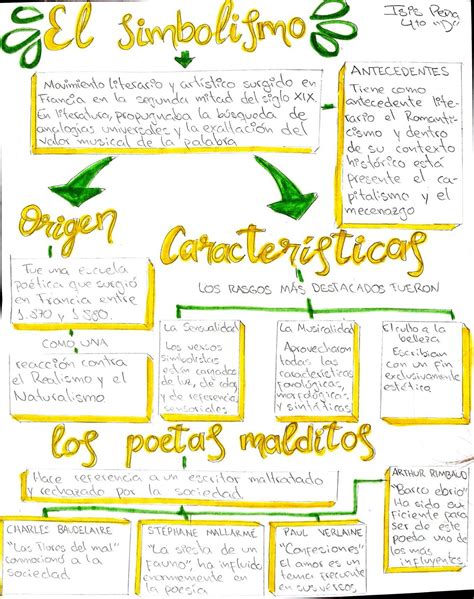 El Simbolismo
Isis Pena
4to "D"
Movimiento literario y artístico surgido en
Francia en la segunda mitad del siglo XIX.
En literatura, propugnaba la búsqueda de
analogías universales y la exaltación del
valor musical de la palabra
ANTECEDENTES
Tiene como
antecedente lite-
rario el Romanti-
cismo y dentro
de su contexto
histórico está
presente el ca-
pitalismo y el
mecenazgo
Origen
Fue una escuela
poética que surgió
en Francia entre
1.870 y 1.880.
COMO UNA
reacción contra
el Realismo y el
Naturalismo
Características
LOS RASGOS MÁS DESTACADOS FUERON
La Sensualidad
Los versos
simbolistas
están cargados
de luz, de color,
y de referencias
sensoriales
La Musicalidad
Aprovecharon
todas las
características
fonológicas,
morfológicas
y sintácticas
El culto a la
belleza
Escribian
con un fin
exclusivamente
estético
los poetas malditos
Hace referencia a un escritor maltratado
y rechazado por la sociedad.
CHARLES BAUDELAIRE
"Las Flores del mal"
conmocionó a la
sociedad
STÉPHANE MALLARMÉ
"La siesta de un
fauno", ha influido
enormemente en
la poesía
PAUL VERLAINE
"Confesiones"
El amor es un
tema frecuente
en sus versos
ARTHUR RIMBAUD
"Barco ebrio"
Ha sido su
ficiente para
ser de este
poeta uno de
los más
influyentes.